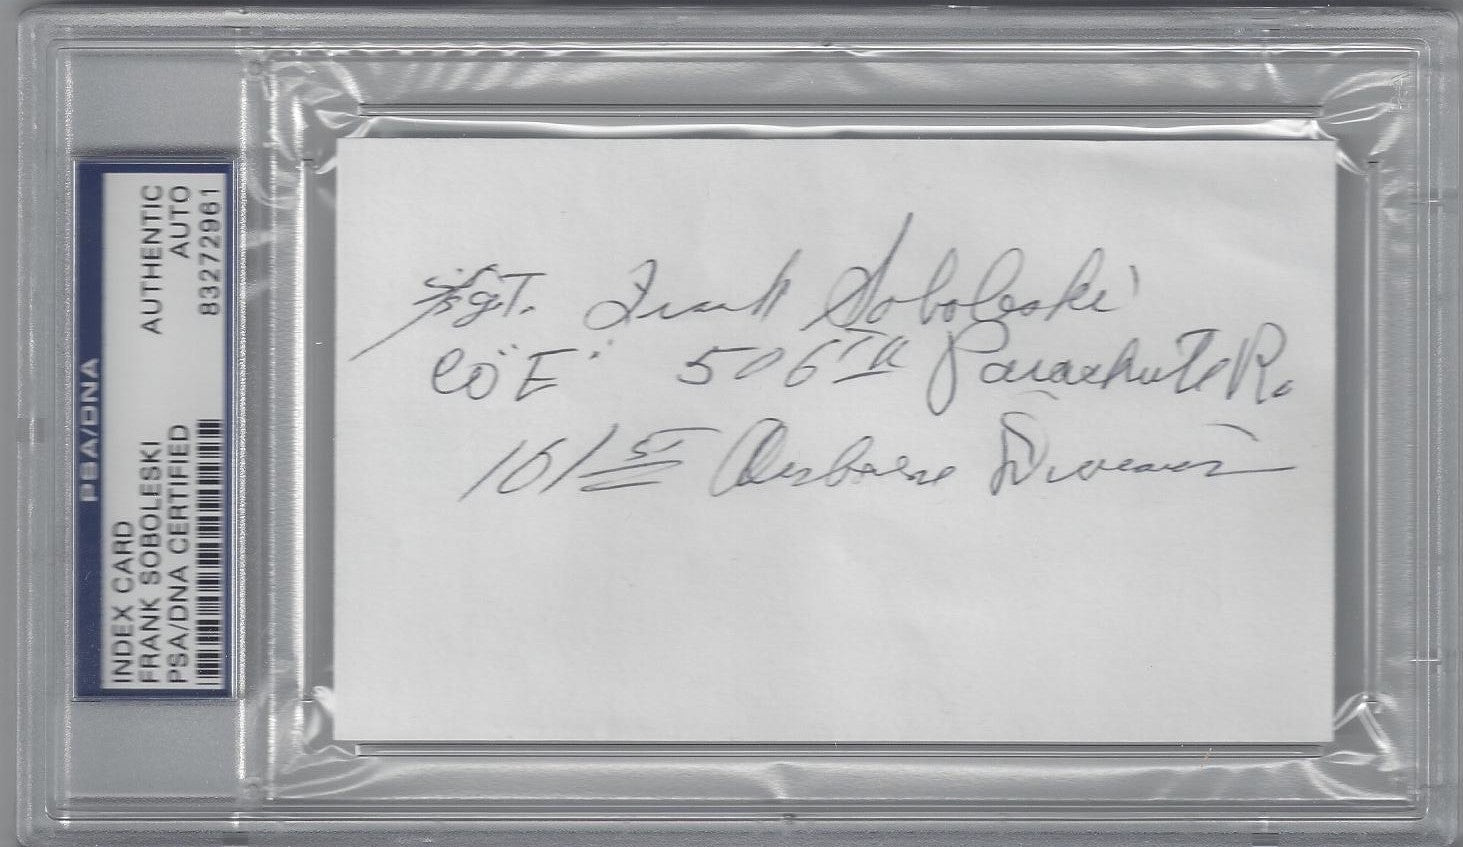 PSA/DNA
INDEX CARD AUTHENTIC
FRANK SOBOLESKI AUTO
PSA/DNA CERTIFIED 83272961
Sgt. Frank Soboleski
Co "E" 506TH Parachute R.
101ST Airborne Division